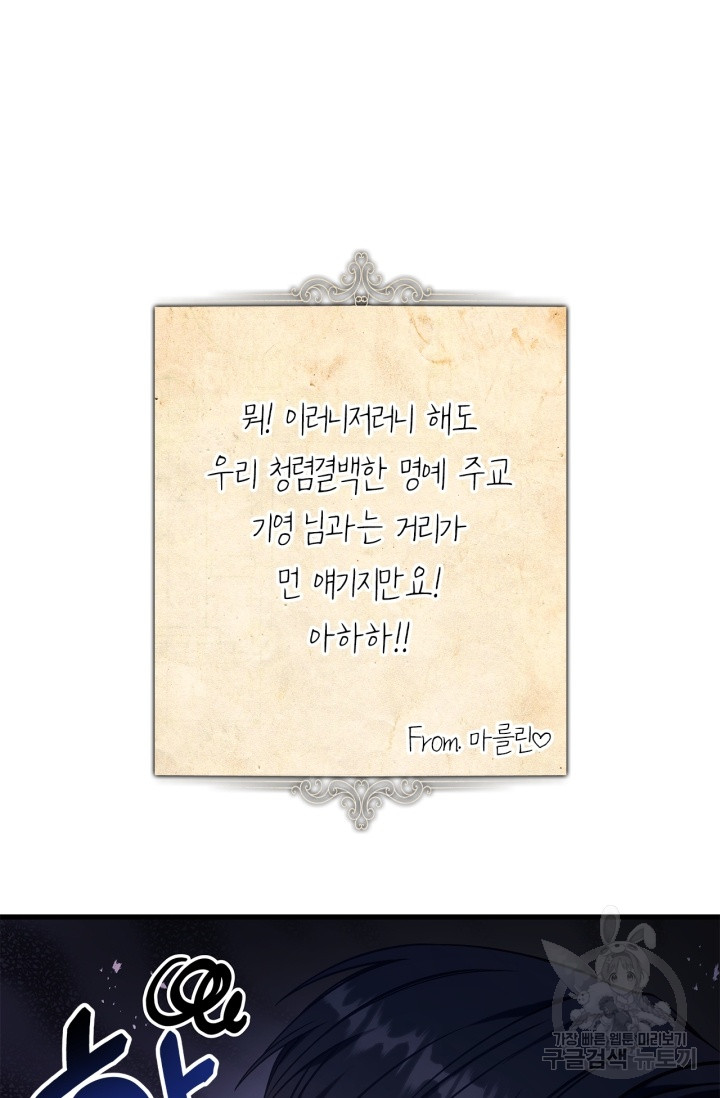 뭐! 이러니저러니 해도
우리 청렴결백한 명예 주교
기영 님과는 거리가
먼 얘기지만요!
아하하!!
From. 마를린♡
가장 빠른 웹툰 미리보기
구글검색 뉴토끼